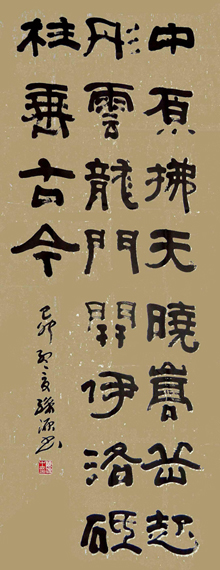 中原拂天曉嵩岳起
彤雲龍門開伊洛砥
柱垂古今
己卯